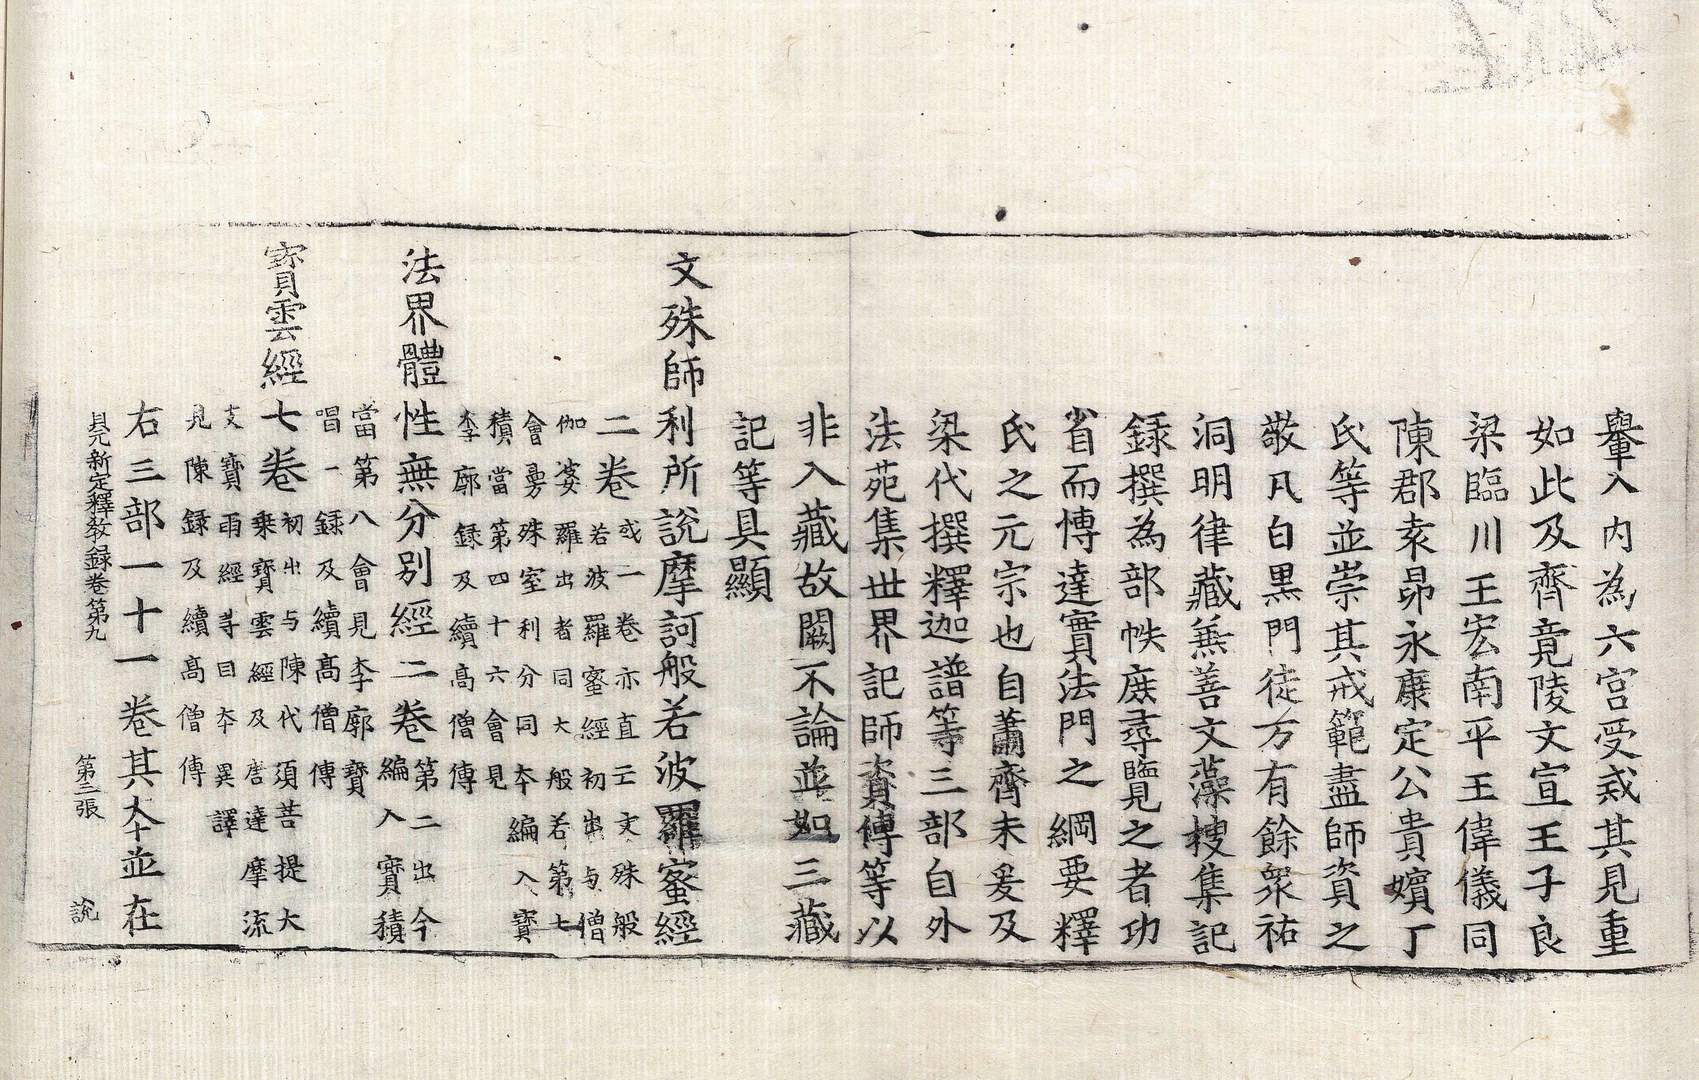 轝入内為六宫受戒其見重
如此及齊竟陵文宣王子良
梁臨川王宏南平王偉儀同
陳郡袁昂永康定公貴嬪丁
氏等並崇其戒範盡師資之
敬凡白黒門徒方有餘衆祐
洞明律藏兼善文藻搜集記
録撰為部帙庶尋覽之者功
省而博達實法門之綱要釋
氏之元宗也自蕭齊末爰及
梁代撰釋迦譜等三部自外
法苑集世界記師資傳等以
非入藏故闕不論並如三藏
記等具顯
文殊師利所說摩訶般若波羅蜜經
二卷
或一卷亦直云文殊般
若波羅蜜經初出与僧
伽婆羅出者同大般若第七
會曼殊室利分同夲編入寳
積當第四十六會見
李廓録及續髙僧傳
法界體性無分別經二卷
第二出今
編入寳積
當第八會見李廓寳
唱一録及續髙僧傳
寳雲經七卷
初出与陳代須菩提大
乗寳雲經及唐達摩流
支寳雨經等同夲異譯
見陳録及續髙僧傳
右三部一十一卷其夲並在
貞元新定釋教録卷第九 第三張 說